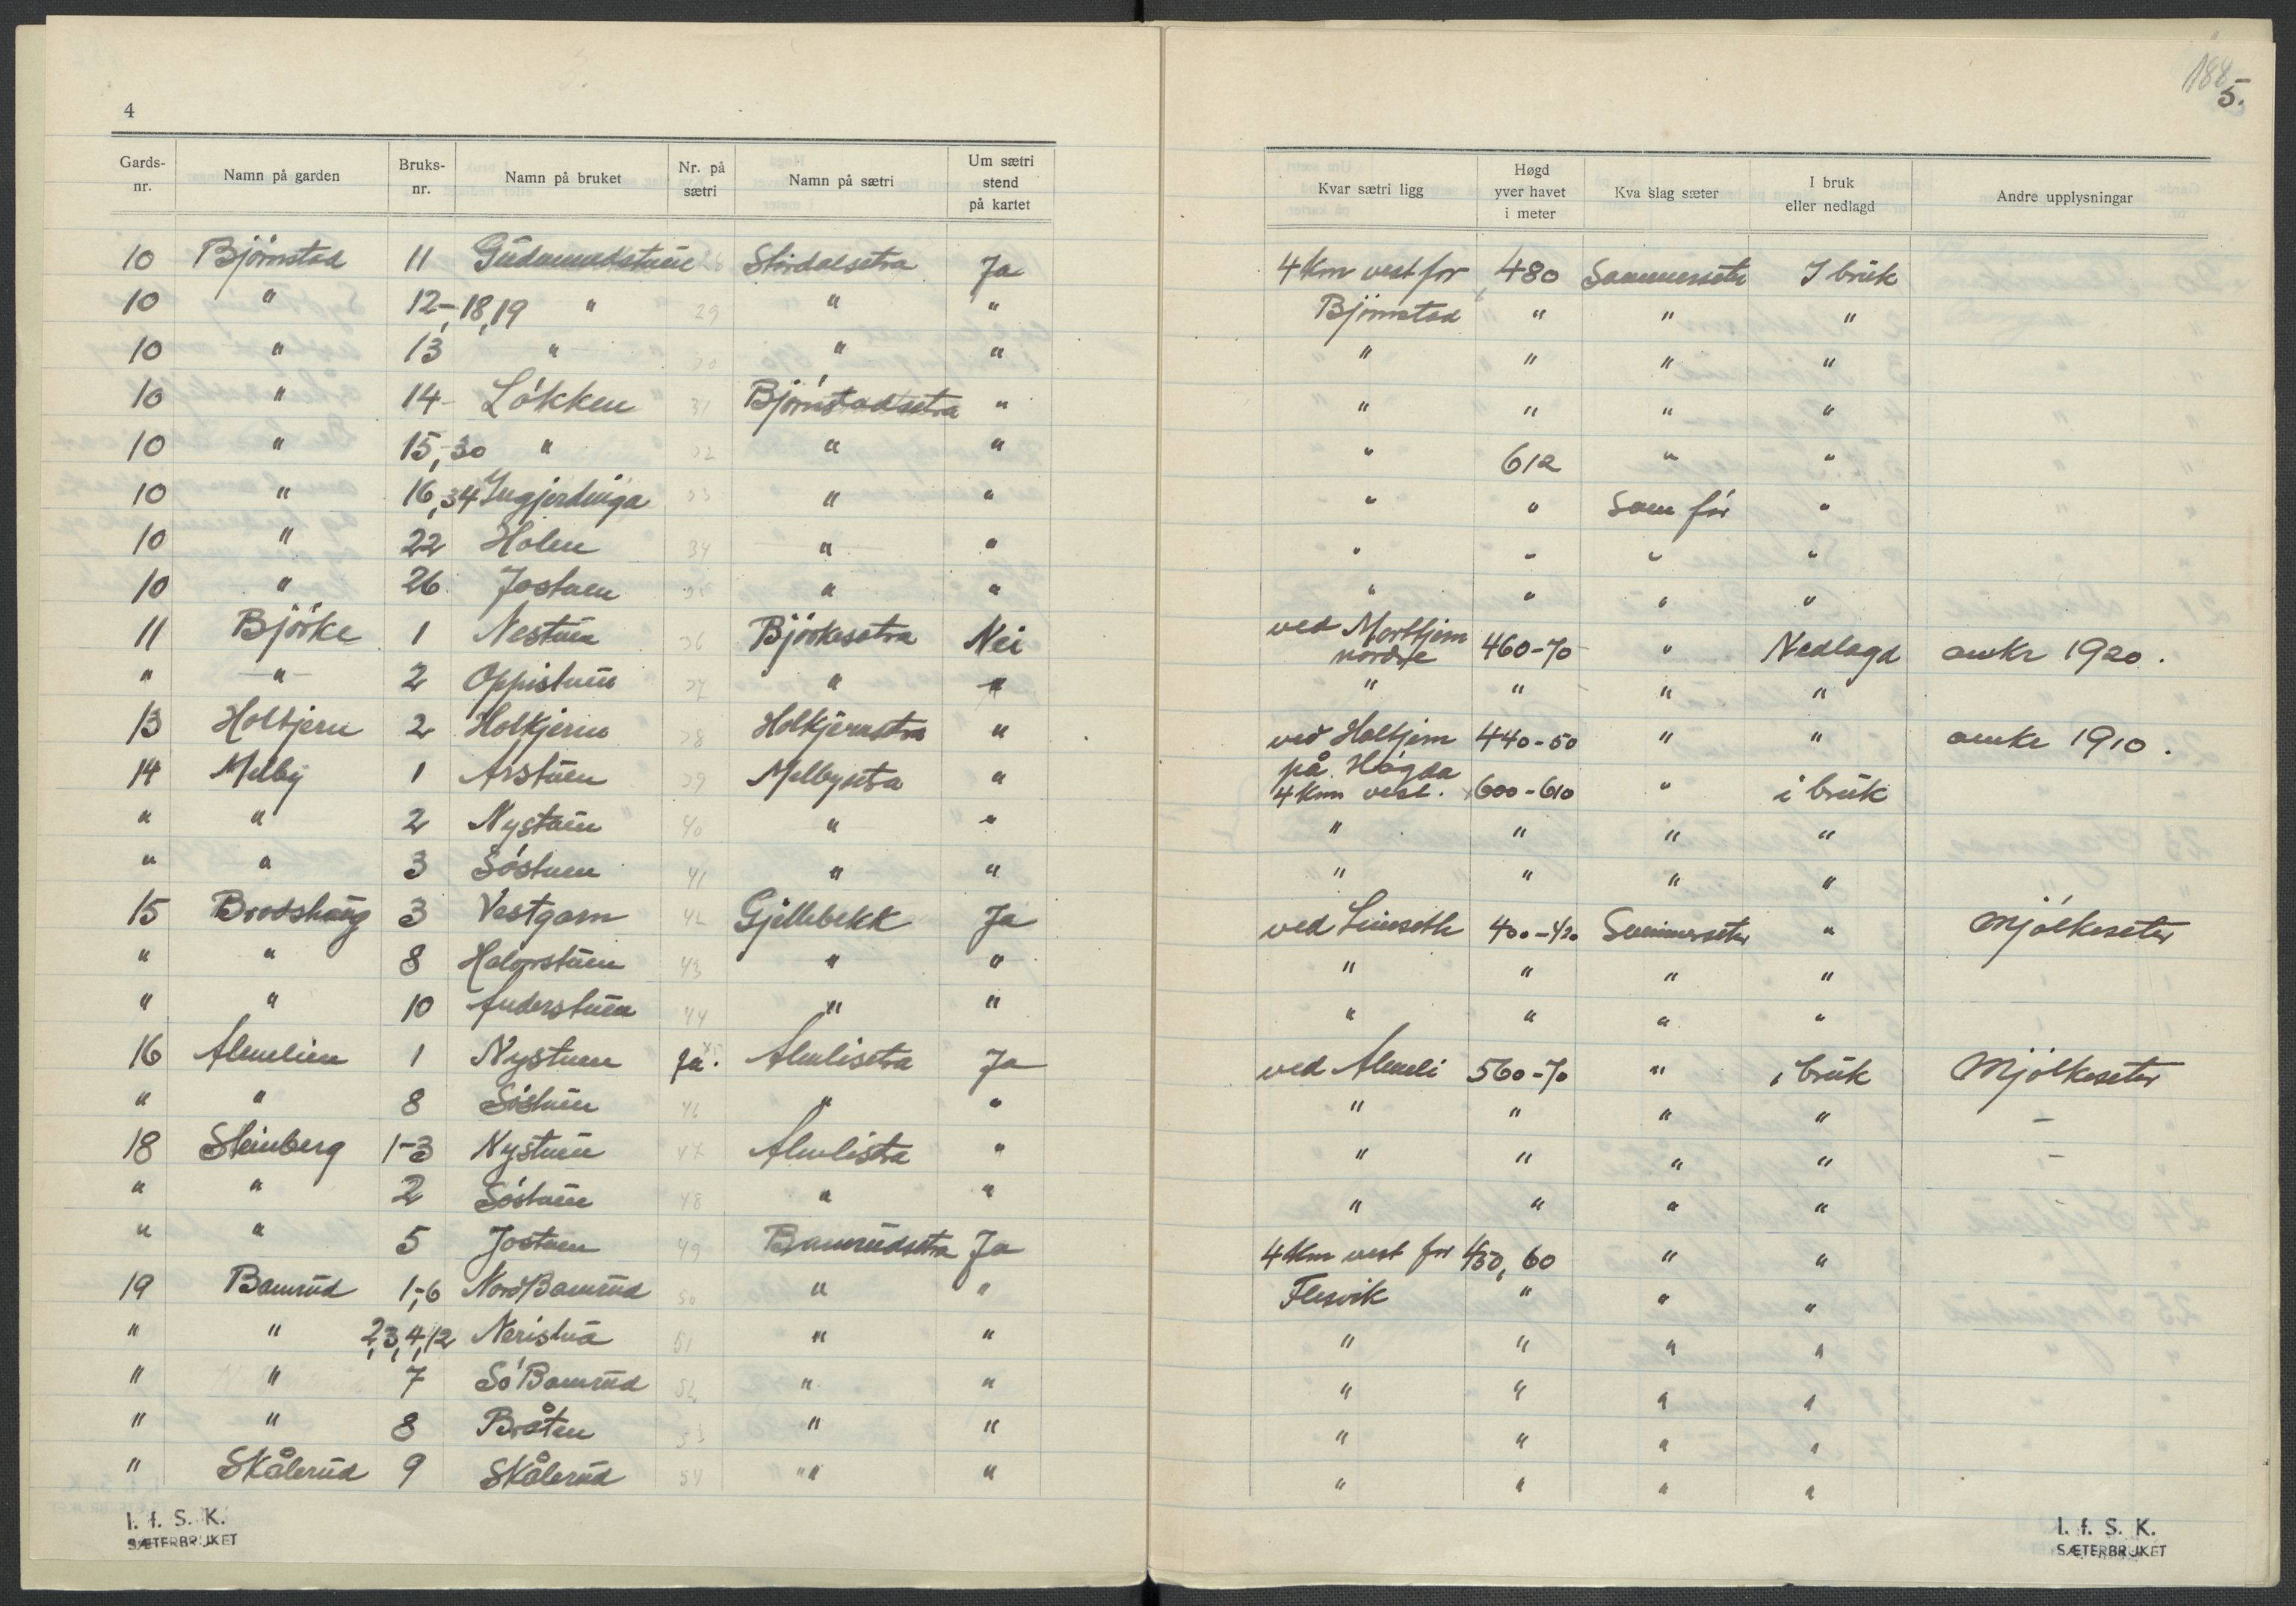 4
Gards-nr. Namn på garden Bruks-nr. Namn på bruket Nr. på sætri Namn på sætri Um sætri stend på kartet
10 Björnstad 11 Gudmundstuen 28 Stordalsetra Ja
10 " 12-,18,19 " 29 " "
10 " 13 " 30 " "
10 " 14- Lökken 31 Björnstadsetra "
10 " 15,-30 " 32 " "
10 " 16,34 Ingjerdinga 33 " "
10 " 22 Holen 34 " "
10 " 26 Jostuen 35 " "
11 Björke 1 Nestuen 36 Björkesetra Nei
" " 2 Oppistuen 37 " "
13 Holtjern 2 Holtjern 38 Holtjernsetra "
14 Melby 1 Arstuen 39 Melbysetra "
" " 2 Nystuen 40 " "
" " 3 Söstuen 41 " "
15 Brodshaug 3 Vestgarn 42 Gjellebekk Ja
" " 8 Halvorstuen 43 " "
" " 10 Anderstuen 44 " "
16 Almelien 1 Nystuen Ja. Almlisetra Ja
" " 8 Söstuen 46 " "
18 Steinberg 1-3 Nystuen 47 Almlisetra "
" " 2 Söstuen 48 " "
" " 5 Jostuen 49 Bamrudsetra Ja
19 Bamrud 1,-6 Nord Bamrud 50 " "
" " 2,3,4,12 Neristua 51 " "
" " 7 Sö Bamrud 52 " "
" " 8 Bråten 53 " "
" Skålerud 9 Skålerud 54 " "
I. f. S. K.
SÆTERBRUKET
188
5.
Kvar sætri ligg Høgd yver havet i meter Kva slag sæter I bruk eller nedlagd Andre upplysningar
4 Km vest for 480 Sommerseter I bruk
Björnstad " " "
" " " "
" " " "
" 612 " "
" " Som för "
" " " "
" " " "
ved Morttjern nordre 460-70 " Nedlagd omkr 1920.
" " " "
ved Holtjern 440-50 " " omkr 1910.
på Høgda
4 Km vest. 600-610 " i bruk
" " " "
" " " "
ved Linseth 400-420 Sommerseter " Mjölkeseter
" " " "
" " " "
ved Almeli 560-70 " i bruk Mjölkeseter
" " " " –
" " " " –
" " " "
4 Km vest for 450, 60 " "
Flesvik " " "
" " " "
" " " "
" " " "
" " " "
I. f. S. K.
SÆTERBRUKET